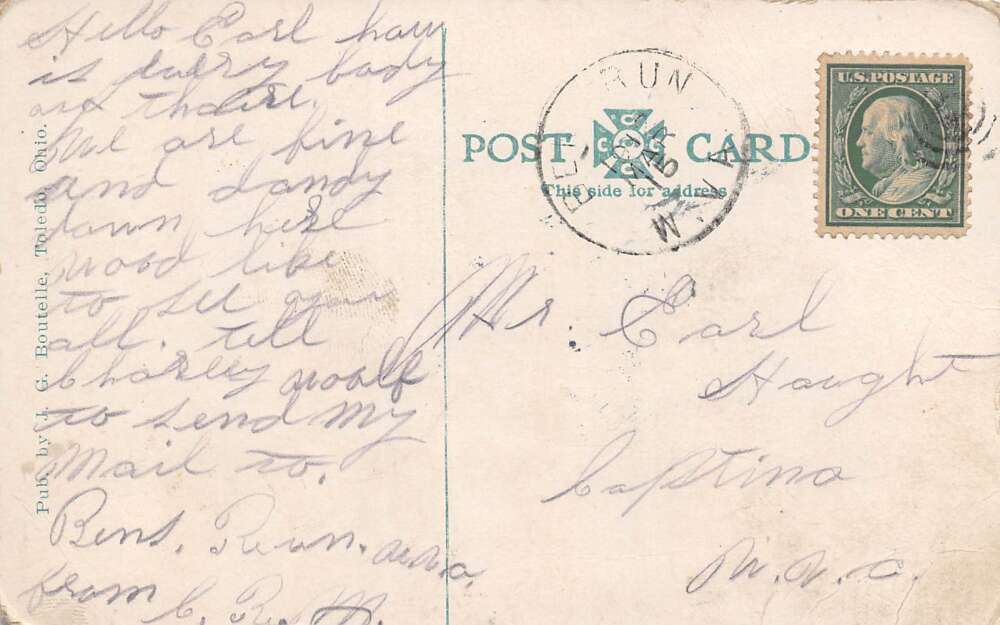 Hello Carl how
is every body
out thaire.
We are fine
and dandy
down here
wood like
to see you
all. tell
Charley woolf
to send My
Mail to.
Bens. Run. W.Va.
from C. R. M.
Pub. by J. G. Boutelle, Toledo, Ohio.
POST CARD
This side for address
RUN
MAR
U.S. POSTAGE
ONE CENT
Mr. Carl
Haught
Captina
W. Va.